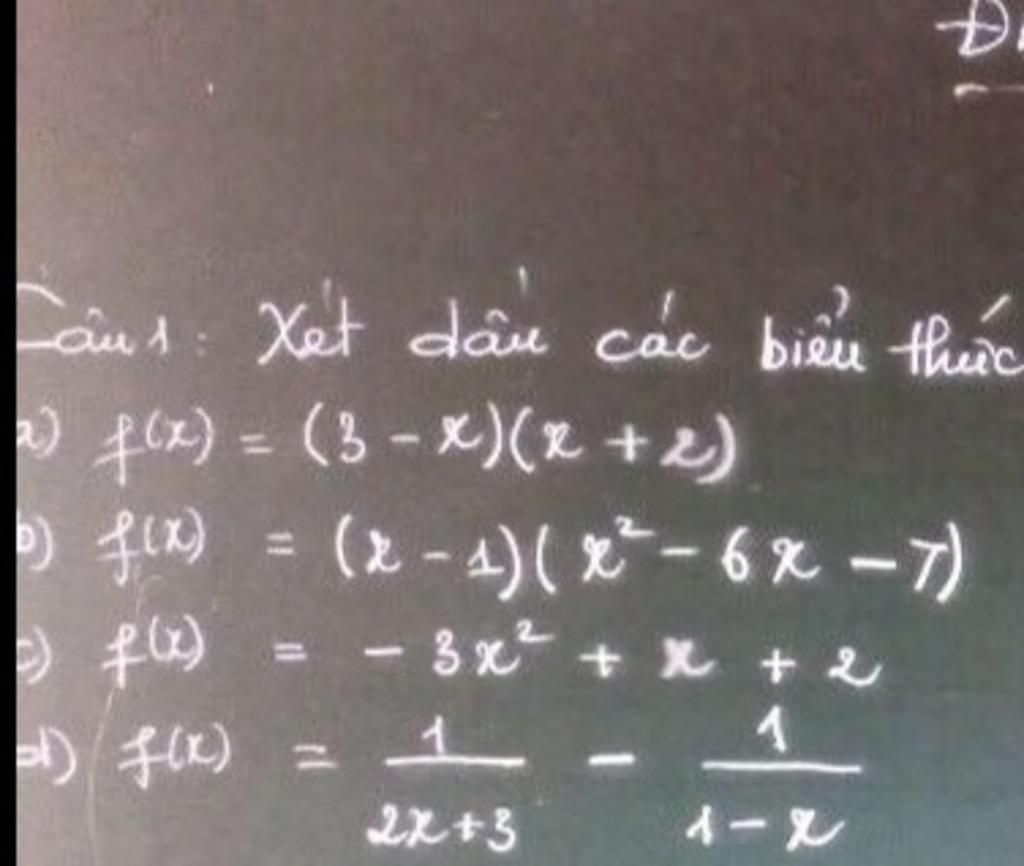 Câu 1: Xét dấu các biểu thức
a) f(x) = (3 - x)(x + 2)
b) f(x) = (x - 1)(x² - 6x - 7)
c) f(x) = - 3x² + x + 2
d) f(x) = 1/(2x+3) - 1/(1-x)